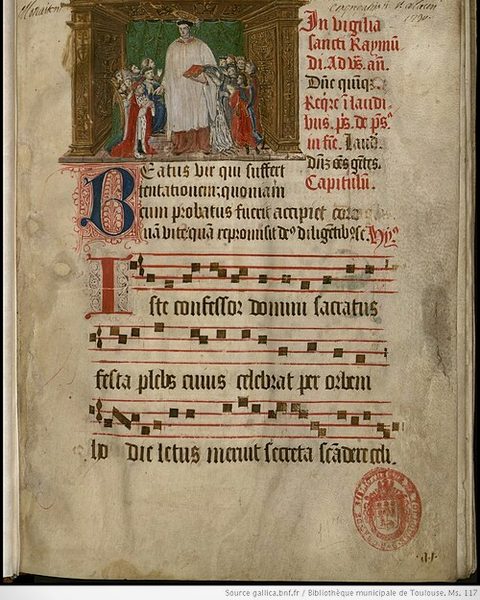 In vigilia
sancti Raymũ
di. Ad vs̃. añ.
Dñe quiq3
Reqre ĩ laudi
bus. ps̃. de ps̃
in fie. Laud.
Dñ3 oẽs gẽtes.
Capitulũ.
Beatus vir qui suffert
tentationem: quoniam
cum probatus fuerit accipiet
quã repromisit deꝰ diligẽtibꝰ se. Hyꝰ
Iste confessor domini sacratus
festa plebs cuius celebrat per orbem
ho die letus meruit secreta scãdere celi.
Source gallica.bnf.fr / Bibliothèque municipale de Toulouse, Ms. 117